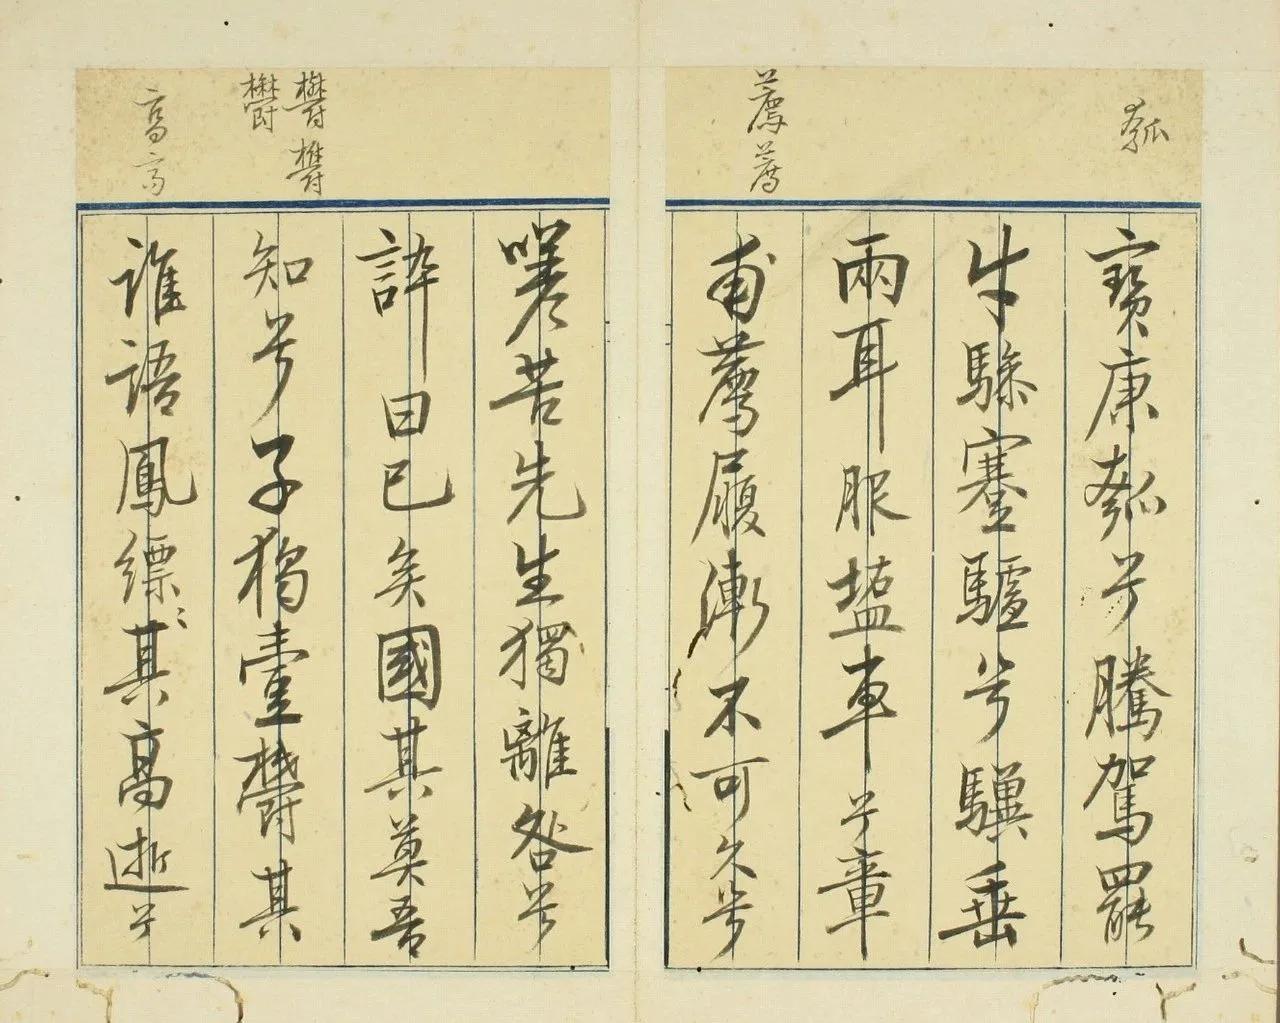 瓠
薦薦
鬱鬱
鬱
高高
寶康瓠兮騰駕罷
牛驂蹇驢兮驥垂
兩耳服鹽車兮章
甫薦履漸不可久兮
嗟苦先生獨離咎兮
誶曰已矣國其莫吾
知兮子獨壹鬱其
誰語鳳縹〻其高逝兮